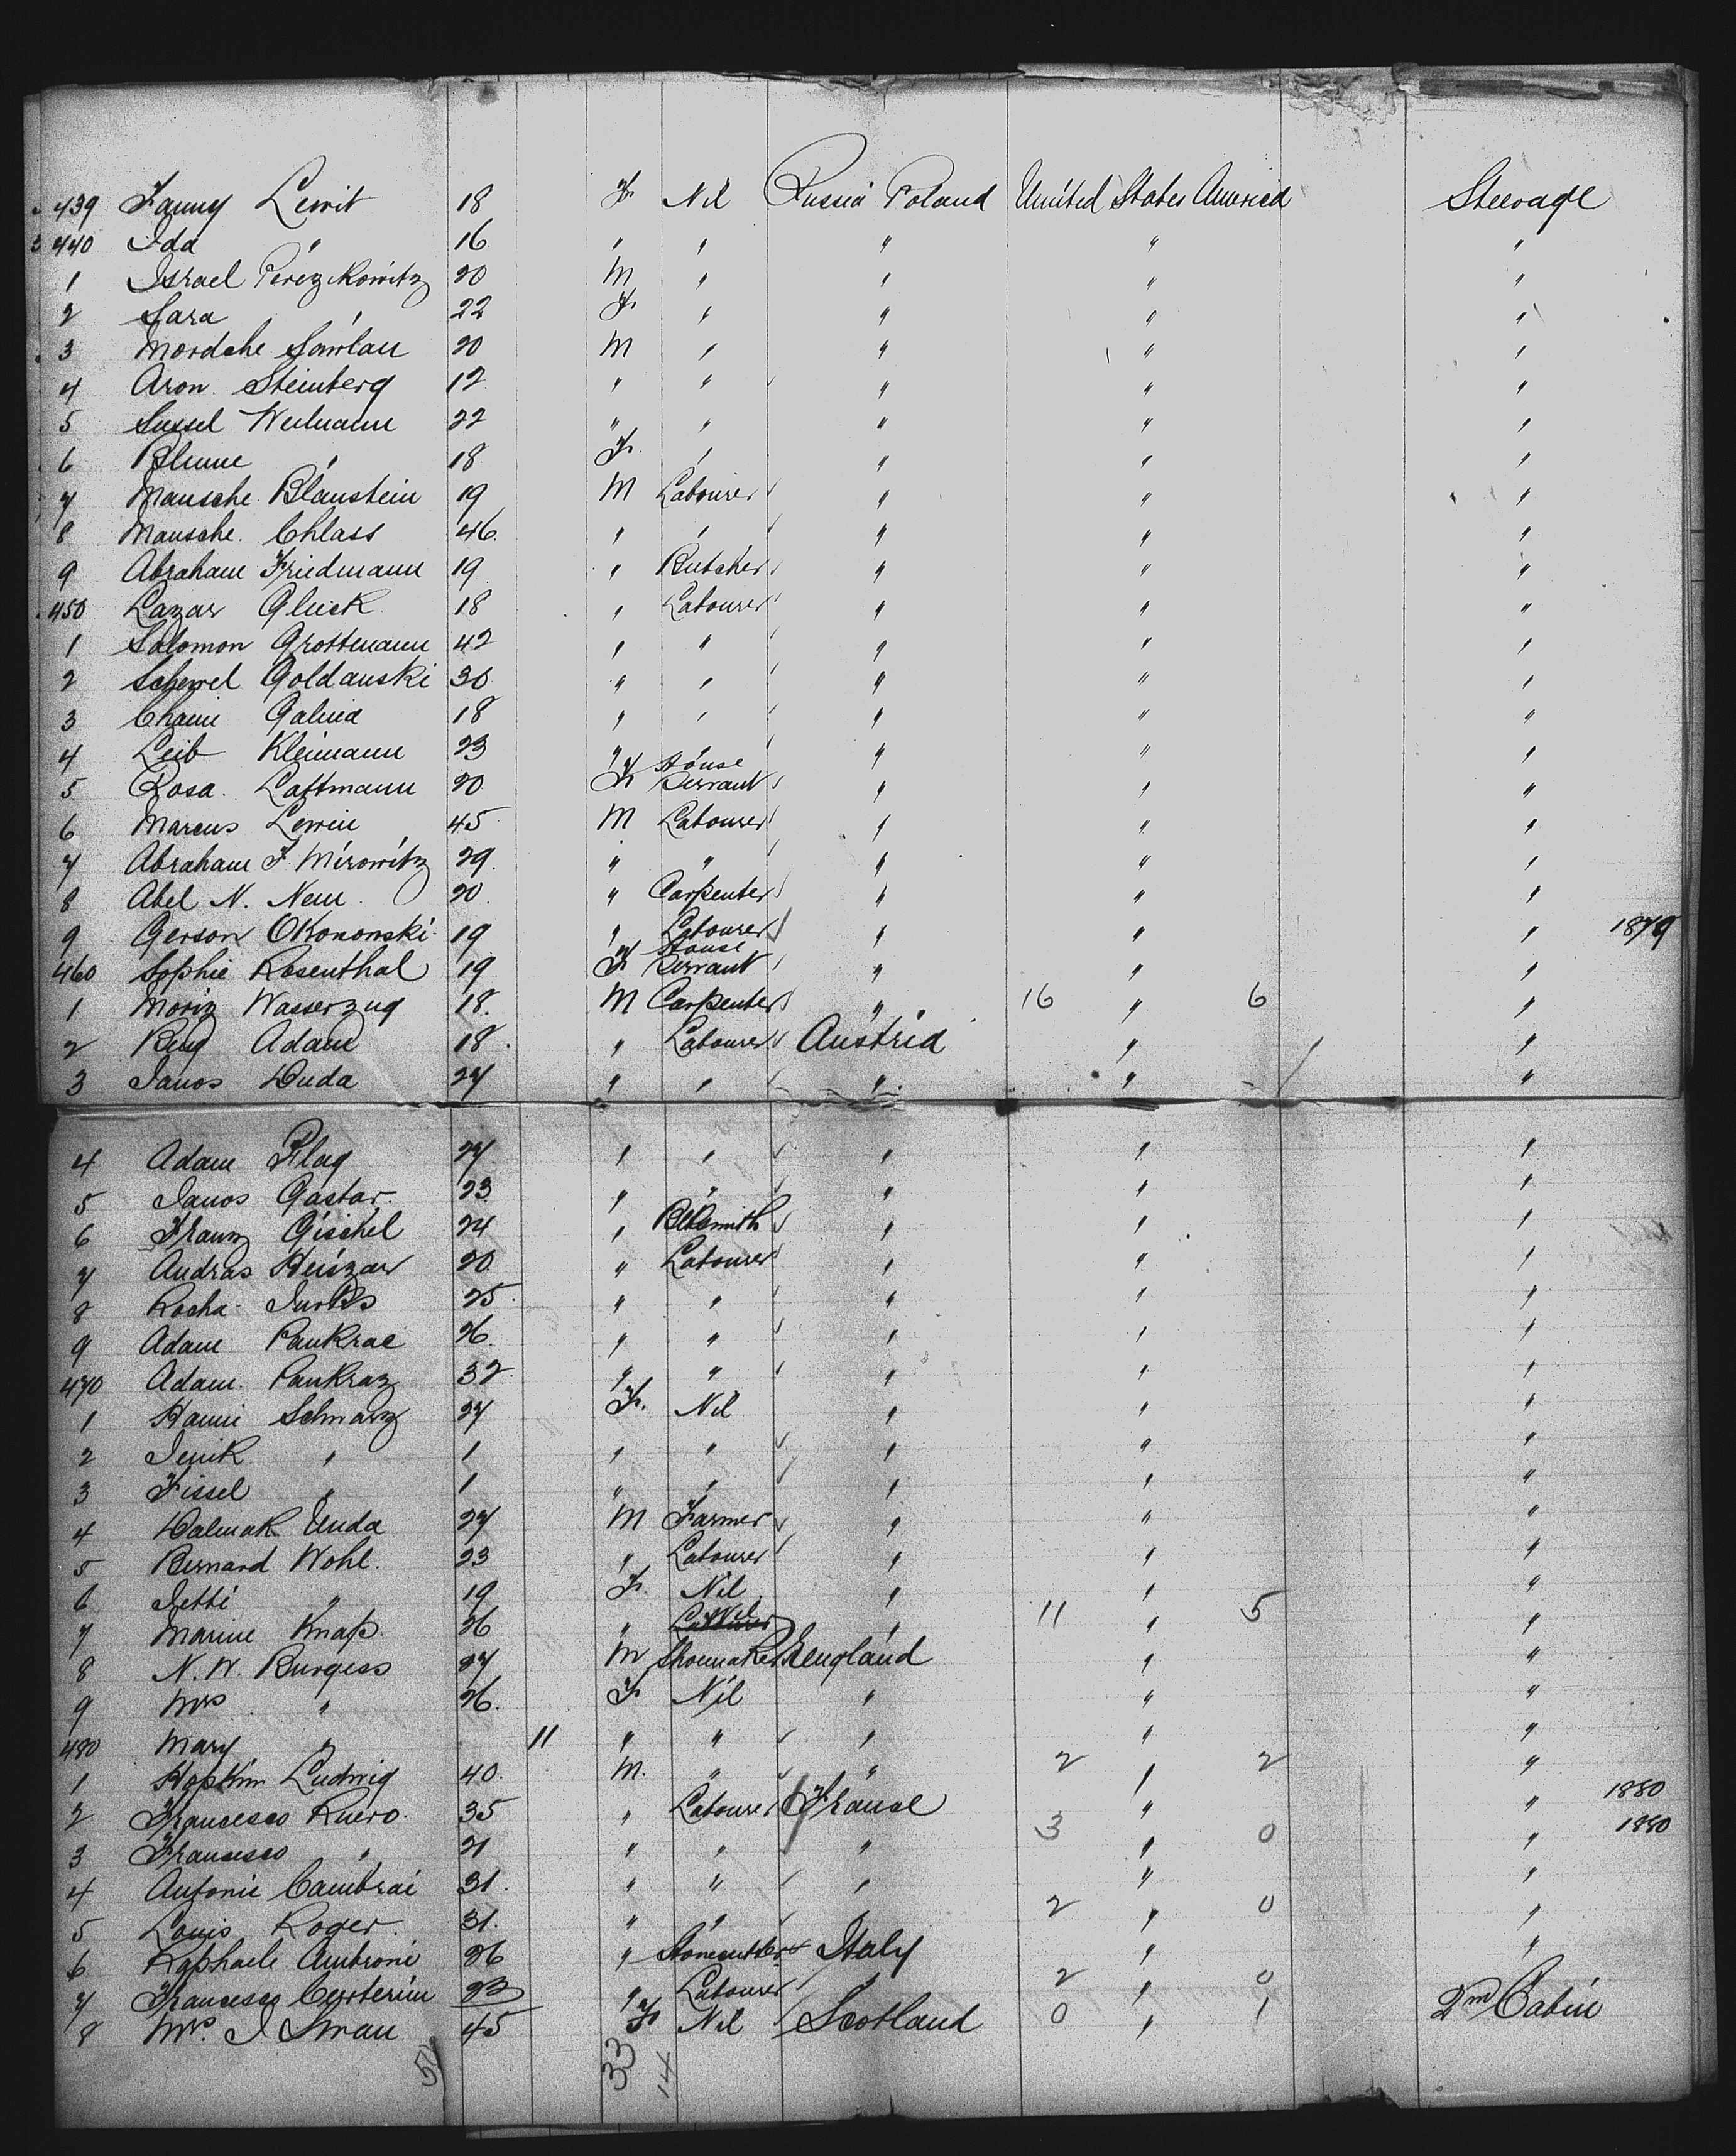 439 Fanny Lewit 18 F Nil Russia Poland United States America Steerage
440 Ida " 16 " " " " "
1 Israel Perezkowitz 20 M " " " "
2 Sara " 22 F " " " "
3 Mordche Sawlan 20 M " " " "
4 Aron Steinberg 12 " " " " "
5 Sussel Weilmann 22 " " " " "
6 Blume " 18 F " " " "
7 Mausche Blaustein 19 M Labourer " " "
8 Mausche Chlass 46 " " " " "
9 Abraham Friedmann 19 " Butcher " " "
450 Lazar Gluck 18 " Labourer " " "
1 Salomon Grossmann 42 " " " " "
2 Schewel Goldanski 30 " " " " "
3 Chaim Galina 18 " " " " "
4 Leib Kleimann 23 " " " " "
5 Rosa Lattmann 20 F House Servant " " "
6 Marcus Lewin 45 M Labourer " " "
7 Abraham F. Mirowitz 29 " " " " "
8 Abel N. New 20 " Carpenter " " "
9 Gerson Okononski 19 " Labourer " " " 1879
460 Sophie Rosenthal 19 F House Servant " " "
1 Moriz Wasserzug 18 M Carpenter " 16 " 6 "
2 Adam 18 " Labourer Austria " "
3 Janos Duda 27 " " " " "
4 Adam Flag 27 " " " " "
5 Janos Gastar 23 " " " " "
6 Franz Gischel 24 " Blksmith " " "
7 Andras Huszar 20 " Labourer " " "
8 Rocha 25 " " " " "
9 Adam Pankrac 26 " " " " "
470 Adam Pankraz 32 " " " " "
1 Hanni Schwarz 27 F Nil " " "
2 Jenik " 1 " " " " "
3 Fissel " 1 " " " " "
4 Dalmak Unda 27 M Farmer " " "
5 Bernard Wohl 23 " Labourer " " "
6 Jetti " 19 F Nil " " "
7 Marine Knap 26 " Nil " 11 " 5 "
8 N. W. Burgess 27 M Shoemaker England " "
9 Mrs " 26 F Nil " " "
480 Mary " 11 " " " " "
1 Hopkin Ludwig 40 M " " 2 " 2 "
2 Francesco Ruero 35 " Labourer France " " 1880
3 Francesco " 21 " " " 3 " 0 " 1880
4 Antonie Cambrai 31 " " " " "
5 Louis Roger 31 " " " 2 " 0 "
6 Raphaele Ambroni 26 " Stonecutter Italy " "
7 Francesco 23 " Labourer " 2 " 0
8 Mrs. J Swan 45 F Nil Scotland 0 " 1 2nd Cabin
33 14